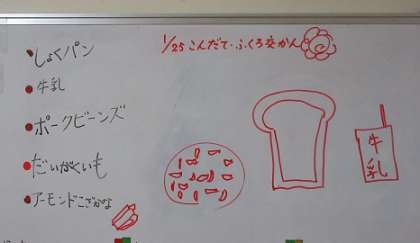 1/25 こんだて・ふくろ交かん
しょくパン
牛乳
ポークビーンズ
だいがくいも
アーモンドこざかな
牛乳